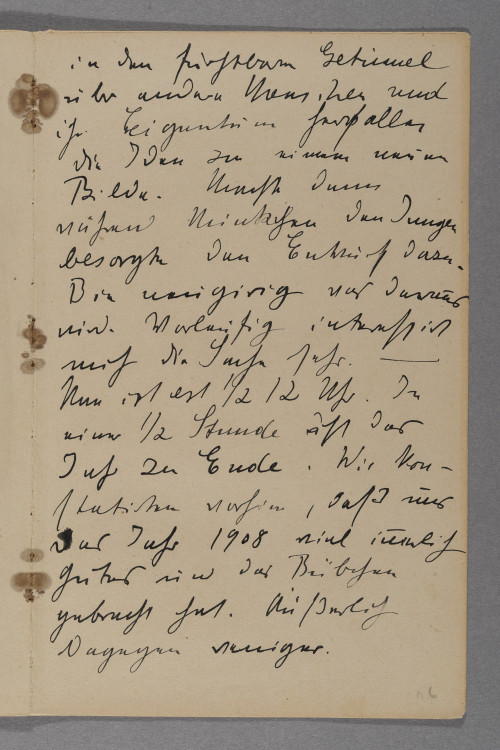 in dem furchtbaren Getümmel
über andere Menschen und
ihr Eigentum herfallen
die Idee zu einem neuen
Bilde. Machte dann
während Minkchen den Jungen
besorgte den Entwurf dazu.
Bin neugierig was daraus
wird. Vorläufig interessirt
mich die Sache sehr. —
Nun ist es 1/2 12 Uhr. In
einer 1/2 Stunde ist das
Jahr zu Ende. Wir kon-
statirten vorhin, daß uns
das Jahr 1908 viel innerlich
Gutes und das Bübchen
gebracht hat. Äußerlich
dagegen weniger.